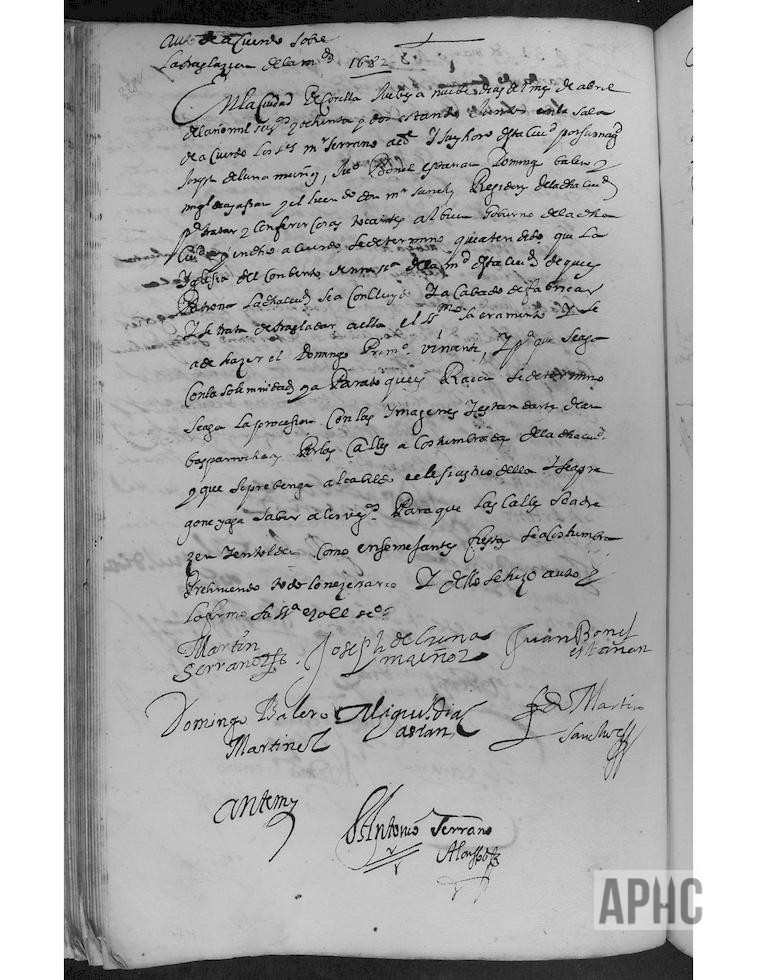 Auto de aCuerdo sobre
la traslazion de la md 1682
En la Ciudad De Corella Nabª a nuebe dias del mes de abril
del año mil seysos y ochenta y dos estando Juntos en la sala
de aCuerdo los ses mn serrano alde Y Juez hordo desta Ciud por su magd
Joseph de luna muñoz, Juº Bonel estañan Domingo balero y
migl diaz aslan y el licendo don mn sanchez Regidores de la dha Ciud
pª tratar y Conferir Cosas tocantes al buen Gobierno de la dha
Ciud y en dho aCuerdo se determino que atendido que la
Yglesia del Conbento de nra sª de la md desta Ciud de que es
Patrona la dha Ciud se a Concluydo Y acabado de fabricar
Y se trata de trasladar a ella el SSmo sacramento Y se
a de hazer el Domingo Primo viniente, Y pª que se aga
Con la solemnidad y aParato que es Raçon se determino
se aga la procession Con las Ymagenes Y estandartes de am
bas parrochias Por las Calles aCostumbradas de la dha Ciud.
y que se prebenga al cabildo eclesiastico della Y se apre
gone y aga saber a los veços Para que las Calles se adre
zen Y entolden Como en semejantes fiestas se aCostumbra
Preliniendo todo lo nezesario Y dello se hizo auto y
lo firmo su ssª e yo el sº
Martin
Serrano
Joseph de Luna
muñoz
Juan Bonel
estañan
Domingo Balero
Martinez
Miguel diaz
aslan
Ldo Martin
Sanchez
Antemy
Antonio Serrano
Alonsso
APHC